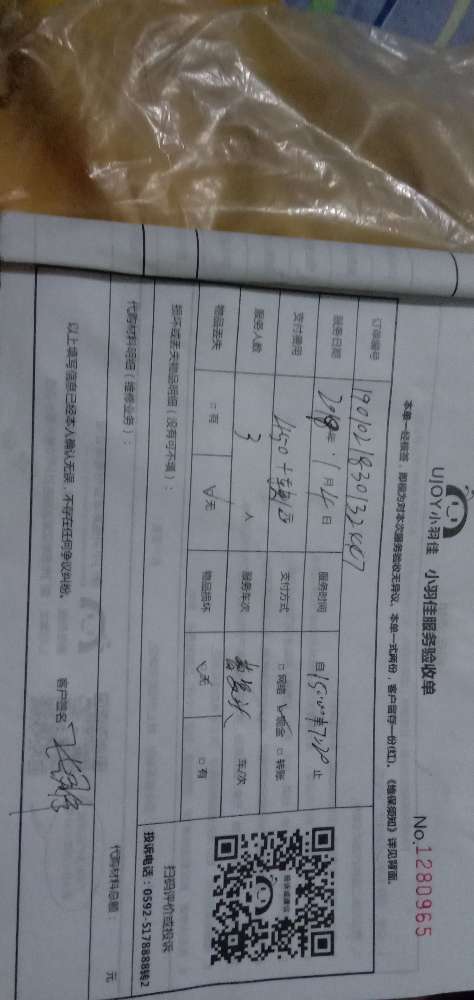 UJOY小羽佳 小羽佳服务验收单
No.1280965
本单一经签签,即视为对本次服务验收无异议。本单一式两份,客户留存一份(红)。《维保须知》详见背面。
订单编号 190102183013244467
服务日期 2019年 1月4日 服务时间 自15:00至17:30止
支付费用 450+ 支付方式 □网络 ☑现金 □转账
服务人数 3 人 服务车次 车/次
物品丢失 □有 ☑无 物品损坏 ☑无 □有
损坏或丢失物品明细(没有可不填):
代购材料明细(维修业务): 代购材料总额: 元
以上填写信息已经本人确认无误,不存在任何争议纠纷。 客户签名:
投诉或建议
扫码评价或投诉
投诉电话:0592-5178888转2